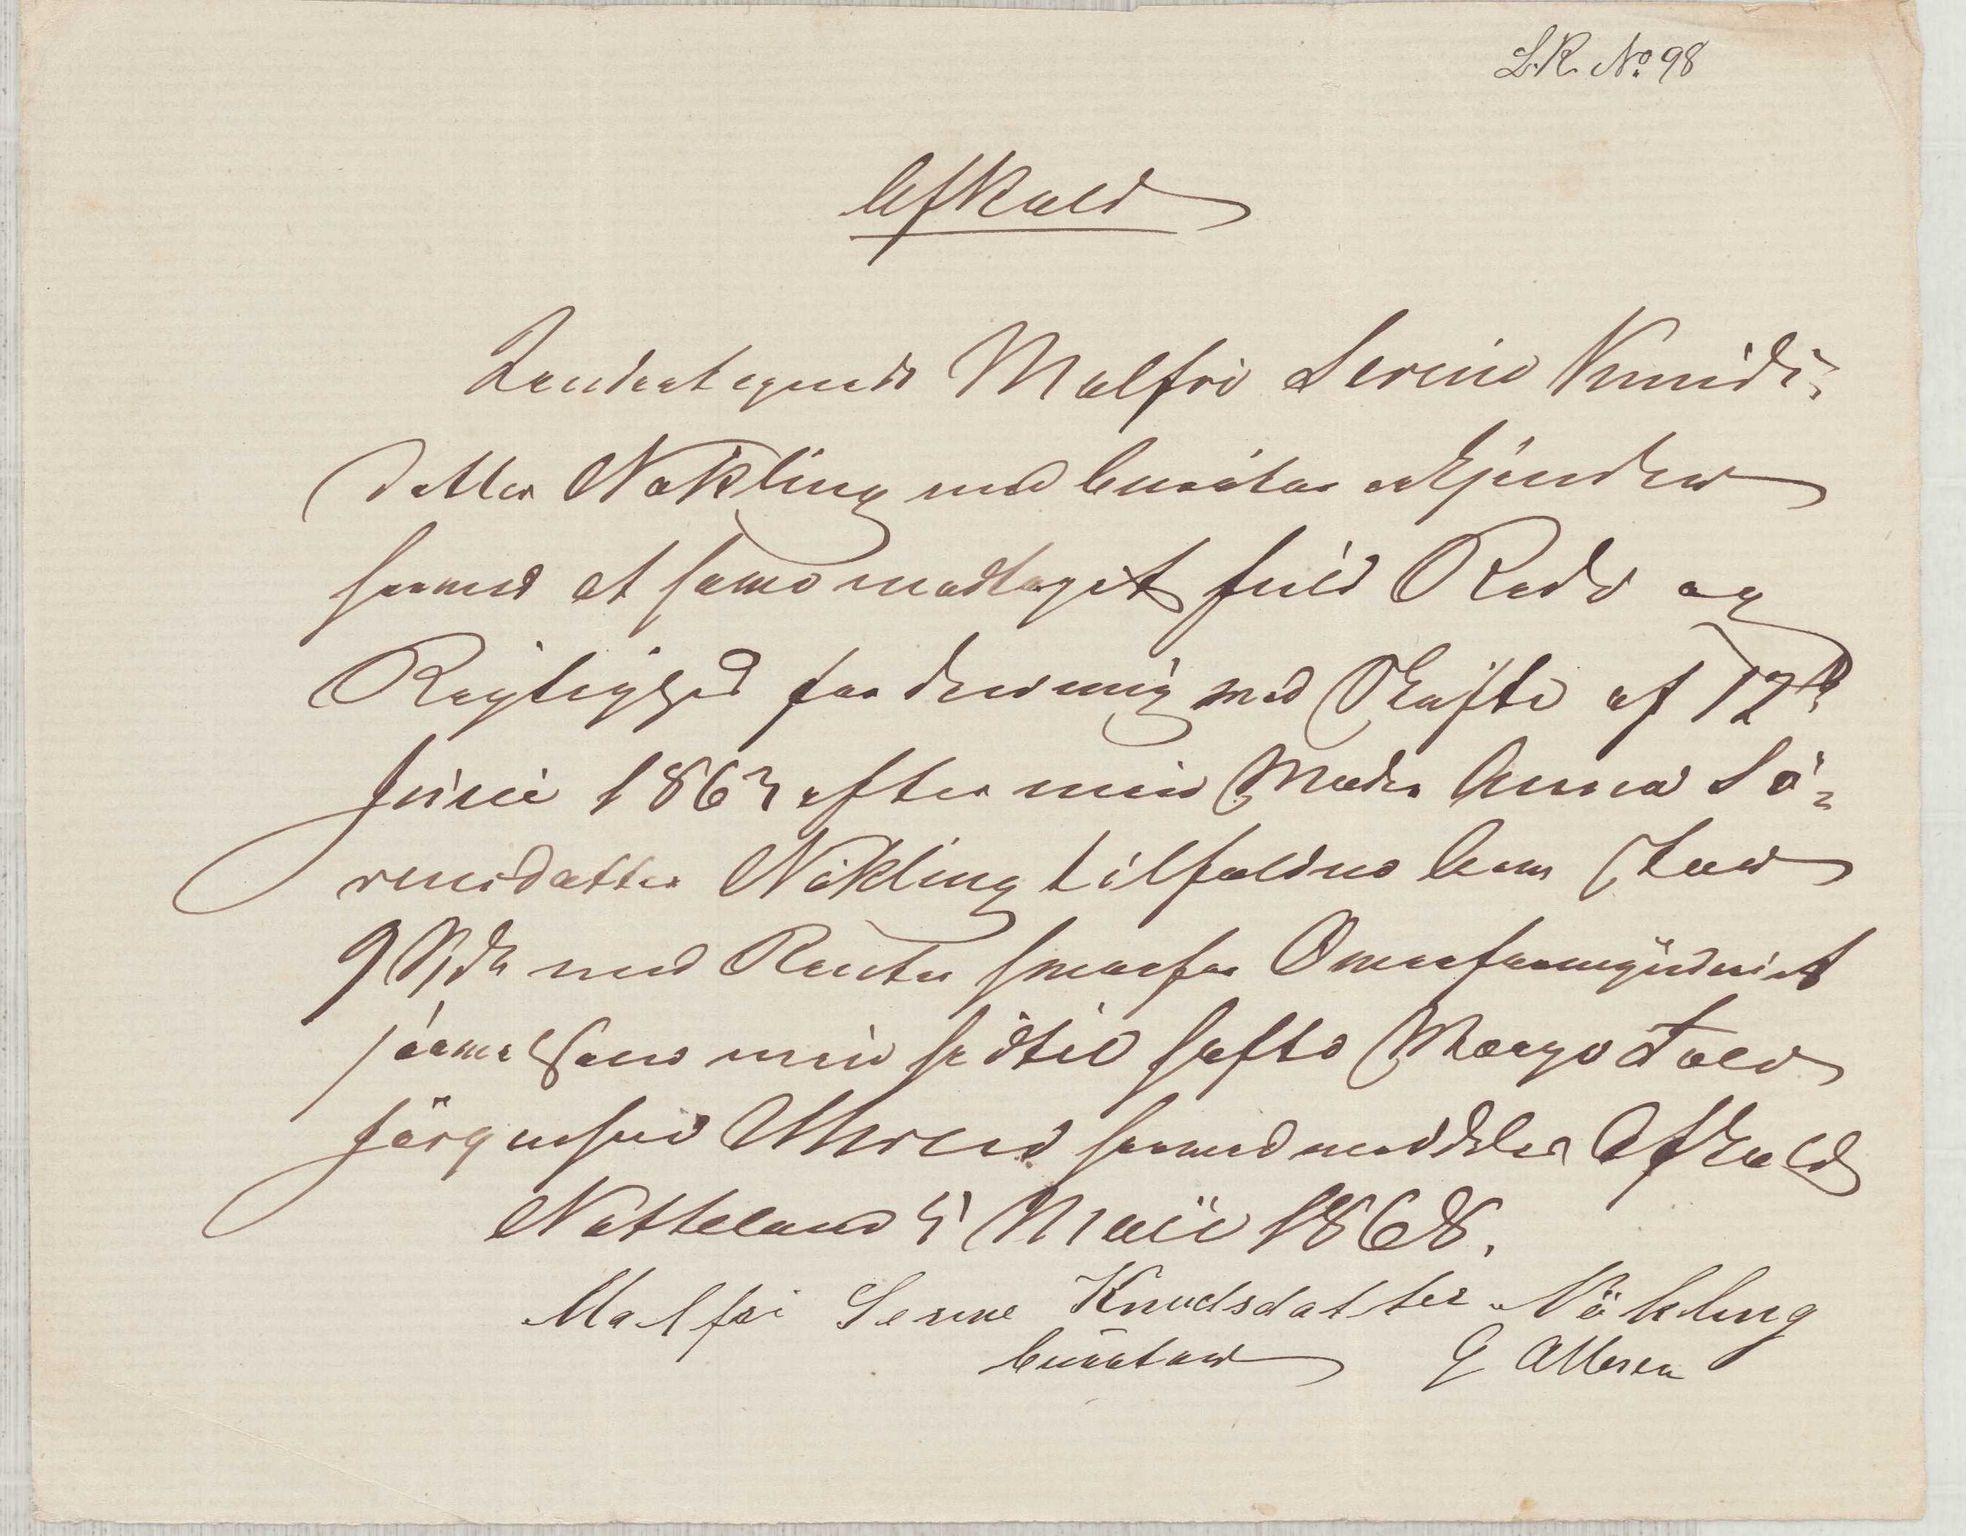 L.R. No 98
Afkald
Undertegnede Malfri Serine Knuds=
datter Nökling med Curator erkjender
herved at have modtaget fuld Rede og
Rigtighed for den mig ved Skifte af 17de
Juni 1863 efter min Moder Anna Sö=
rensdatter Nökling tilfaldne Arv, stor
9 Spd med Renter hvorfor Overformynderiet
saavelsom min
Jörgensen herved meddeles Afkald
5 Mai 1868.
Malfri Serine Knudsdatter Nökling
Curator